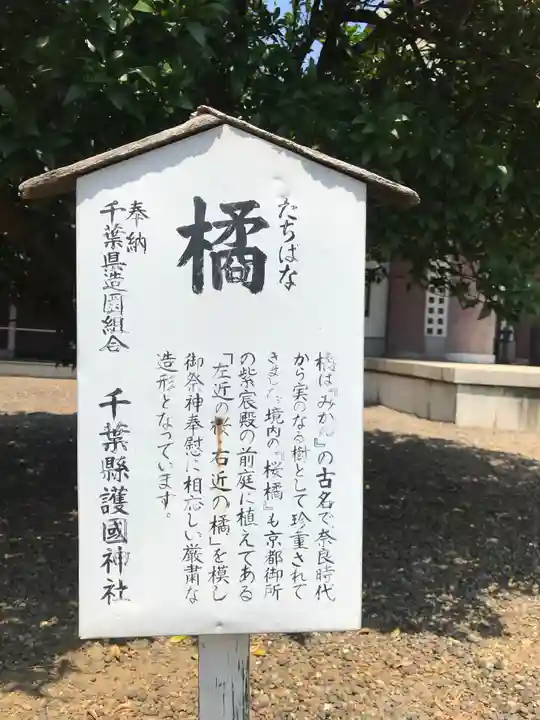 たちばな
橘
橘は『みかん』の古名で、奈良時代
から実のなる樹として珍重されて
きました。境内の『桜橘』も京都御所
の紫宸殿の前庭に植えてある
「左近の桜、右近の橘」を模し
御祭神奉慰に相応しい厳粛な
造形となっています。
奉納
千葉県造園組合
千葉縣護國神社